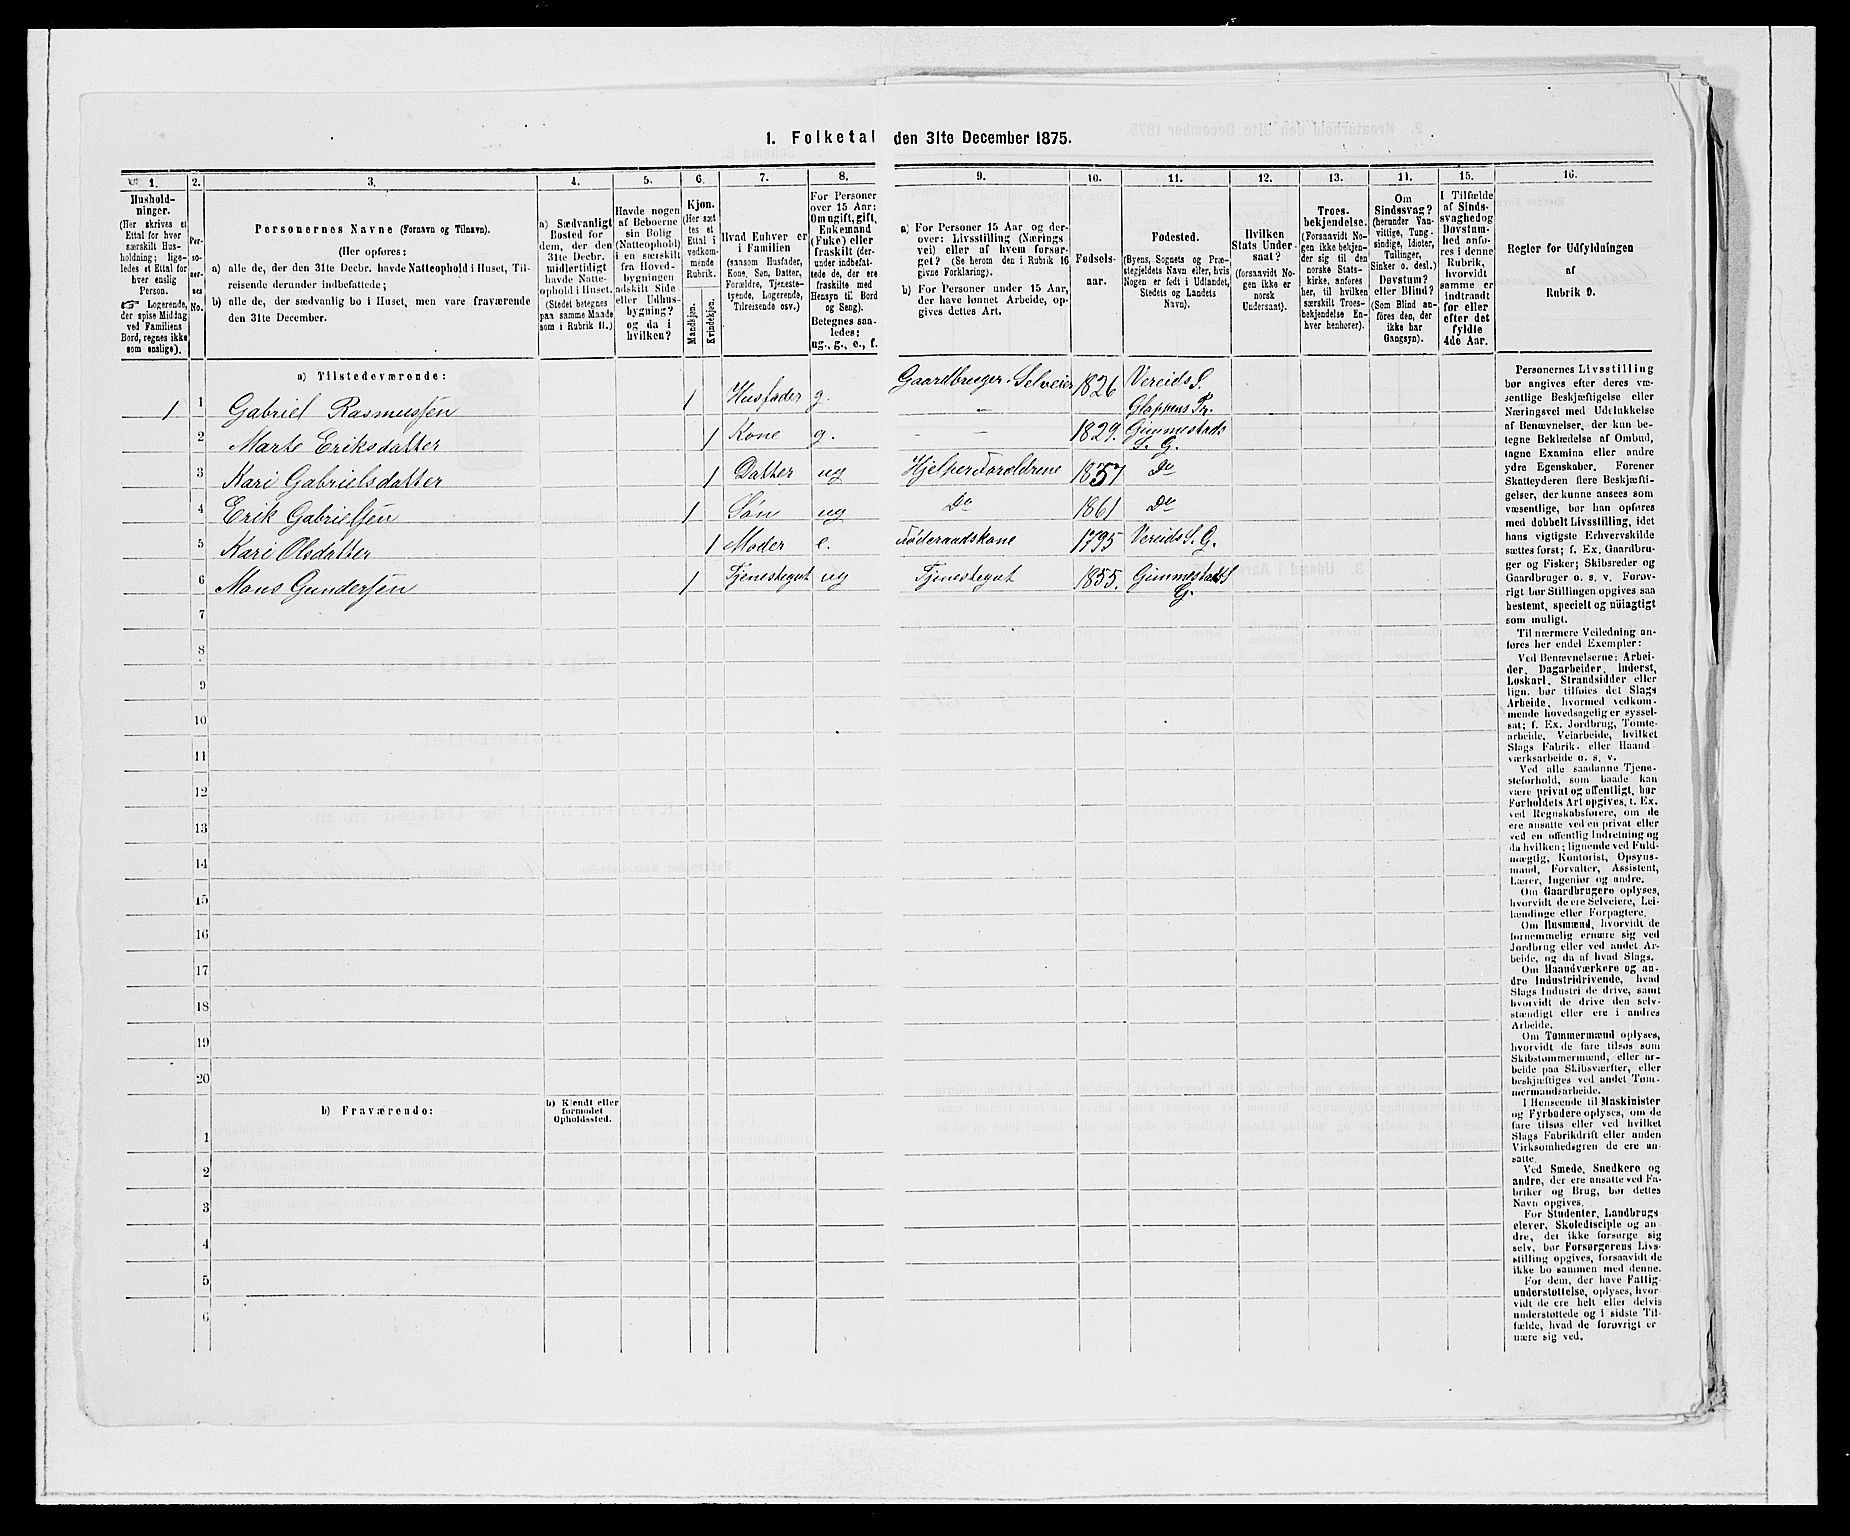 1. Folketal den 31te December 1875.
1.
2.
3.
4.
5.
6.
7.
8.
9.
10.
11.
12.
13.
14.
15.
16.
Hushold-
ninger.
(Her skrives et
Ettal for hver
særskilt Hus-
holdning; lige-
ledes et Ettal for
hver enslig
Person.
☞ Logerende,
der spise Middag
ved Familiens
Bord, regnes ikke
som enslige).
Per-
soner-
nes
No.
Personernes Navne (Fornavn og Tilnavn).
(Her opføres:
a) alle de, der den 31te Decbr. havde Natteophold i Huset, Til-
reisende derunder indbefattede;
b) alle de, der sædvanlig bo i Huset, men vare fraværende
den 31te December.
a) Sædvanligt
Bosted for
dem, der den
31te Decbr.
midlertidigt
havde Natte-
ophold i Huset.
(Stedet betegnes
paa samme Maade
som i Rubrik 11.)
Havde nogen
af Beboerne
sin Bolig
(Natteophold)
i en særskilt
fra Hoved-
bygningen
adskilt Side-
eller Udhus-
bygning?
og da i
hvilken?
Kjøn.
(Her sæt-
tes et
Ettal i
vedkom-
mende
Rubrik.
Mandkjøn.
Kvindekjøn.
Hvad Enhver er
i Familien
(saasom Husfader,
Kone, Søn, Datter,
Forældre, Tjeneste-
tyende, Logerende,
Tilreisende osv.)
For Personer
over 15 Aar:
Om ugift, gift,
Enkemand
(Enke) eller
fraskilt (der-
under indbefat-
tede de, der ere
fraskilte med
Hensyn til Bord
og Seng).
Betegnes saa-
ledes:
ug., g., e., f.
a) For Personer 15 Aar og der-
over: Livsstilling (Nærings
vei) eller af hvem forsør-
get? (Se herom den i Rubrik 16
givne Forklaring).
b) For Personer under 15 Aar,
der have lønnet Arbeide, op-
gives dettes Art.
Fødsels-
aar.
Fødested.
(Byens, Sognets og Præ-
stegjeldets Navn eller, hvis
Nogen er født i Udlandet,
Stedets og Landets
Navn).
Hvilken
Stats Under-
saat?
(forsaavidt No-
gen ikke er
norsk
Undersaat).
Troes-
bekjendelse.
(Forsaavidt No-
gen ikke bekjen-
der sig til den
norske Stats-
kirke, anføres
her, til hvilken
særskilt Troes-
bekjendelse En-
hver henhører).
Om
Sindssvag?
(herunder Van-
vittige, Tung-
sindige, Idioter,
Tullinger,
Sinker o. desl.)
Døvstum?
eller Blind?
(Som Blind an-
føres den, der
ikke har
Gangsyn).
I Tilfælde
af Sinds-
svaghed og
Døvstum-
hed anfø-
res i denne
Rubrik,
hvorvidt
samme er
indtraadt
før eller
efter det
fyldte
4de Aar.
Regler for Udfyldningen
af
Rubrik 9.
a) Tilstedeværende:
1 1 Gabriel Rasmussen 1 Husfader g. Gaardbruger-Selveier 1826 Vereids S.
Gloppens Pr.
2 Marte Eriksdatter 1 Kone g. – – 1829. Gimmestads
S. G.
3 Kari Gabrielsdatter 1 Datter ug Hjelper Forældrene 1857 Do
4 Erik Gabrielsen 1 Søn ug Do 1861 Do
5 Kari Olsdatter 1 Moder e. Føderaadskone 1795 Vereids S. G.
6 Mons Gundersen 1 Tjenestegut ug Tjenestegut 1855. Gimmestads S
G.
7
8
9
10
11
12
13
14
15
16
17
18
19
20
b) Fraværende:
b) Kjendt eller
formodet
Opholdssted.
1
2
3
4
5
6
Personernes Livsstilling
bør angives efter deres væ-
sentlige Beskjæftigelse eller
Næringsvei med Udelukkelse
af Benævnelser, der kun be-
tegne Beklædelse af Ombud,
tagne Examina eller andre
ydre Egenskaber. Forener
Skatteyderen flere Beskjæfti-
gelser, der kunne ansees som
væsentlige, bør han opføres
med dobbelt Livsstilling, idet
hans vigtigste Erhvervskilde
sættes først; f. Ex. Gaardbru-
ger og Fisker; Skibsreder og
Gaardbruger o. s. v. Forøv-
rigt bør Stillingen opgives saa
bestemt, specielt og nøiagtigt
som muligt.
Til nærmere Veiledning an-
føres her endel Exempler:
Ved Benævnelserne: Arbei-
der, Dagarbeider, Inderst,
Løskarl, Strandsidder eller
lign. bør tilføies det Slags
Arbeide, hvormed vedkom-
mende hovedsagelig er syssel-
sat; f. Ex. Jordbrug, Tomte-
arbeide, Veiarbeide, hvilket
Slags Fabrik- eller Haand-
værksarbeide o. s. v.
Ved alle saadanne Tjene-
steforhold, som baade kan
være privat og offentligt, bør
Forholdets Art opgives, t. Ex.
ved Regnskabsførere, om de
ere ansatte ved en privat eller
ved en offentlig Indretning og
da hvilken; lignende ved Fuld-
mægtig, Kontorist, Opsyns-
mand, Forvalter, Assistent,
Lærer, Ingeniør og andre.
Om Gaardbrugere oplyses,
hvorvidt de ere Selveiere, Lei-
lændinge eller Forpagtere.
Om Husmænd, hvorvidt de
fornemmelig ernære sig ved
Jordbrug eller ved andet Ar-
beide, og da af hvad Slags.
Om Haandværkere og an-
dre Industridrivende, hvad
Slags Industri de drive, samt
hvorvidt de drive den selv-
stændigt eller ere i andres
Arbeide.
Om Tømmermænd oplyses,
hvorvidt de fare tilsøs som
Skibstømmermænd, eller ar-
beide paa Skibsværfter, eller
beskjæftiges ved andet Tøm-
mermandsarbeide.
I Henseende til Maskinister
og Fyrbødere oplyses, om de
fare tilsøs eller ved hvilket
Slags Fabrikdrift eller anden
Virksomhedsgren de ere an-
satte.
Ved Smede, Snedkere og
andre, der ere ansatte ved Fa-
briker og Brug, bør dettes
Navn opgives.
For Studenter, Landbrugs-
elever, Skoledisciple og an-
dre, der ikke forsørge sig
selv, bør Forsørgerens Livs-
stilling opgives, forsaavidt de
ikke bo sammen med denne.
For dem, der have Fattig-
understøttelse, oplyses, hvor-
vidt de ere helt eller delvis
understøttede og i sidste Til-
fælde, hvad de forøvrigt er
nære sig ved.